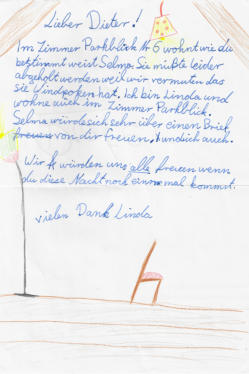 Lieber Dieter!
Im Zimmer Parkblick Nr 6 wohnt wie du
bestimmt weist Selma. Sie mußte leider
abgeholt werden weil wir vermuten das
sie Windpocken hat. Ich bin Linda und
wohne auch im Zimmer Parkblick.
Selma würde sich sehr über einen Brief
freuen von dir freuen, undich auch.
Wir würden uns alle freuen wenn
du diese Nacht noch einmal kommst.
vielen Dank Linda